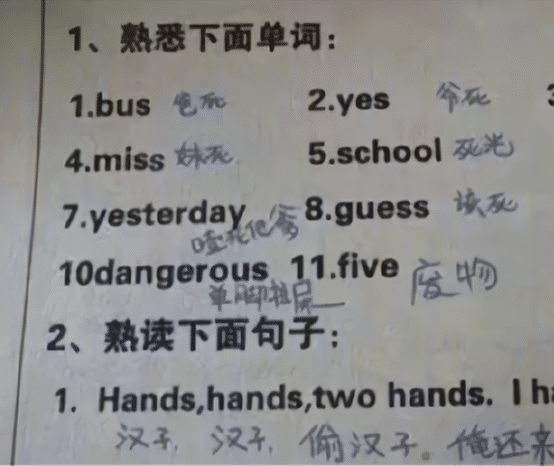 1、熟悉下面单词：
1.bus 爸死 2.yes 爷死
4.miss 妹死 5.school 死光
7.yesterday 8.guess 该死
噎死他爹
10dangerous 11.five 废物
单脚拉屎
2、熟读下面句子：
1. Hands,hands,two hands. I ha
汉子，汉子，偷汉子。俺还来